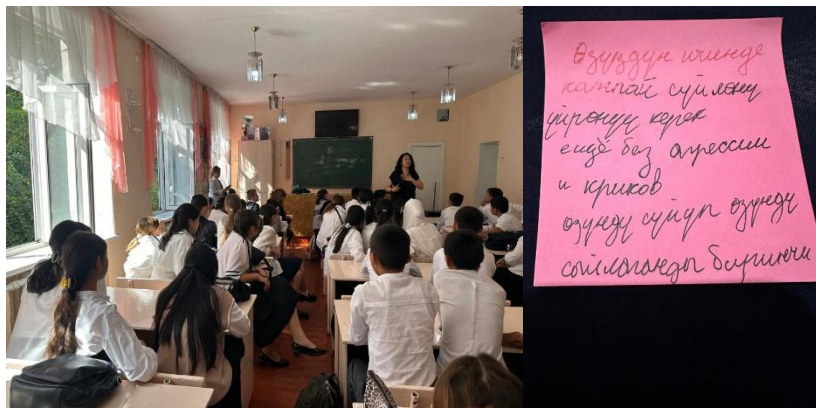 Өзүңдүн ичинде
катпай сүйлөну
үйрөнүү керек
ещё без агрессии
и криков
өзүңдү сүйүп өзүңдү
сыйлаганды билгиничи